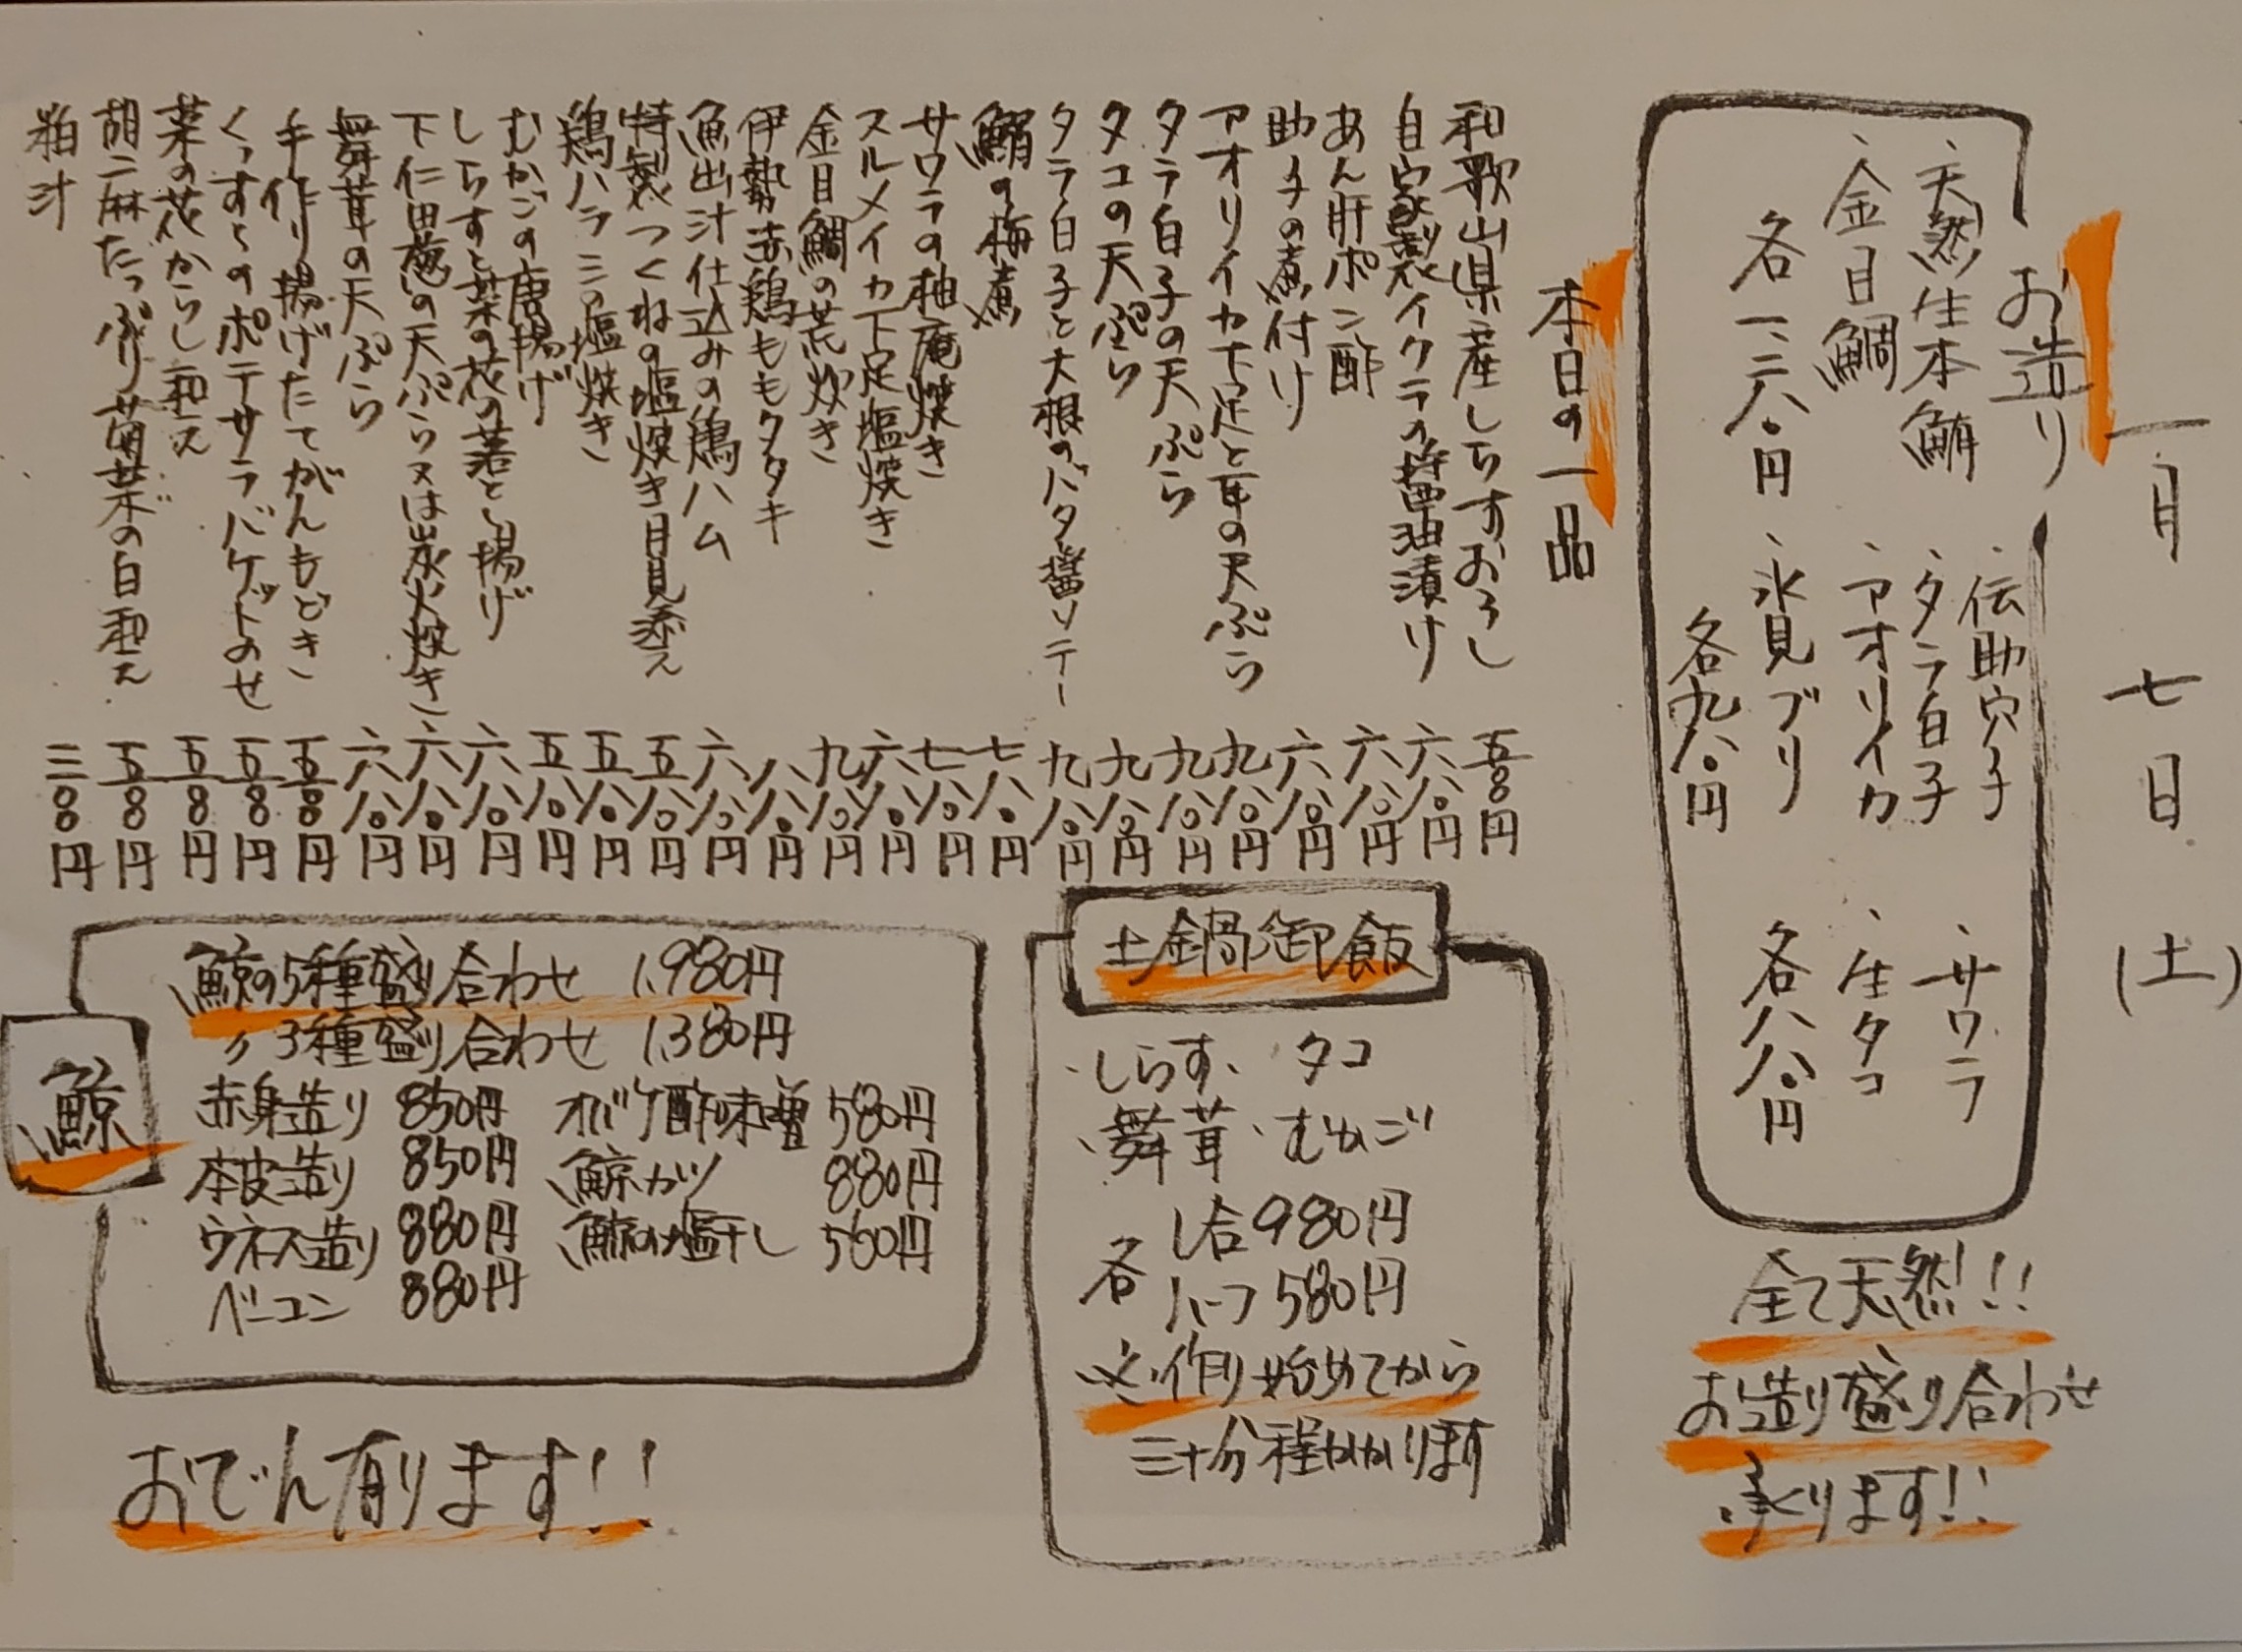 一月七日(土)
お造り
・天然生本鮪
・金目鯛
各一、二八〇円
・伝助穴子
・タラ白子
・アオリイカ
・氷見ブリ
各九八〇円
・サワラ
・生タコ
各八八〇円
全て天然!!
お造り盛り合わせ
承ります!!
本日の一品
和歌山県産しらすおろし 五八〇円
自家製イクラの醤油漬け 六八〇円
あん肝ポン酢 六八〇円
助子の煮付け 六八〇円
アオリイカ下足と耳の天ぷら 九八〇円
タラ白子の天ぷら 九八〇円
タコの天ぷら 九八〇円
タラ白子と大根のバタ醤ソテー 九八〇円
鰯の梅煮 七八〇円
サワラの柚庵焼き 七八〇円
スルメイカ下足塩焼き 六八〇円
金目鯛の荒炊き 九八〇円
伊勢赤鶏ももタタキ 八八〇円
魚出汁仕込みの鶏ハム 六八〇円
特製つくねの塩焼き月見添え 五八〇円
鶏ハラミの塩焼き 五八〇円
むかごの唐揚げ 五八〇円
しらすと菜の花の落とし揚げ 六八〇円
下仁田葱の天ぷら又は炭火焼き 六八〇円
舞茸の天ぷら 六八〇円
手作り揚げたてがんもどき 五八〇円
くっすとのポテサラバケットのせ 五八〇円
菜の花からし和え 五八〇円
胡麻たっぷり菊菜の白和え 五八〇円
粕汁 三八〇円
土鍋御飯
・しらす・タコ
・舞茸・むかご
各 1合980円
ハーフ580円
※作り始めてから
三十分程かかります
鯨
鯨の5種盛り合わせ 1,980円
〃3種盛り合わせ 1,380円
赤身造り 850円 オバケ酢味噌 580円
本皮造り 850円 鯨カツ 880円
ウネス造り 880円 鯨の塩干し 560円
ベーコン 880円
おでん有ります!!